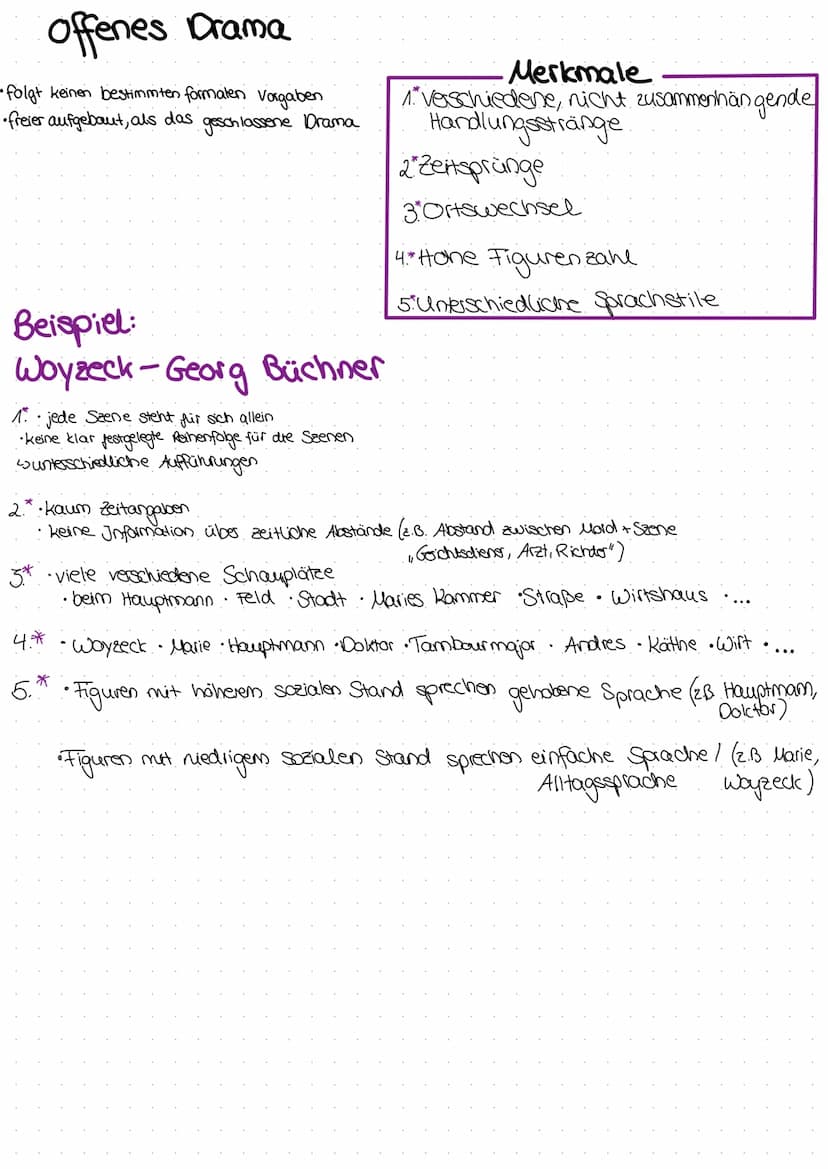 Offenes Drama
• folgt keinen bestimmten formalen Vorgaben
• freier aufgebaut, als das geschlossene Drama
Merkmale
1.* Verschiedene, nicht zusammenhängende
Handlungsstränge
2.* Zeitsprünge
3.* Ortswechsel
4.* Hohe Figurenzahl
5.* Unterschiedliche Sprachstile
Beispiel:
Woyzeck – Georg Büchner
1.* • jede Szene steht für sich allein
• keine klar festgelegte Reihenfolge für die Szenen
↳ unterschiedliche Aufführungen
2.* • kaum Zeitangaben
• keine Information über zeitliche Abstände (z.B. Abstand zwischen Mord + Szene
„Gerichtsdiener, Arzt, Richter")
3.* • viele verschiedene Schauplätze
• beim Hauptmann • Feld • Stadt • Maries Kammer • Straße • Wirtshaus • ...
4.* • Woyzeck • Marie • Hauptmann • Doktor • Tambourmajor • Andres • Käthe • Wirt • ...
5.* • Figuren mit höherem sozialen Stand sprechen gehobene Sprache (z.B Hauptmann,
Doktor)
• Figuren mit niedrigem sozialen Stand sprechen einfache Sprache / (z.B Marie,
Alltagssprache Woyzeck)